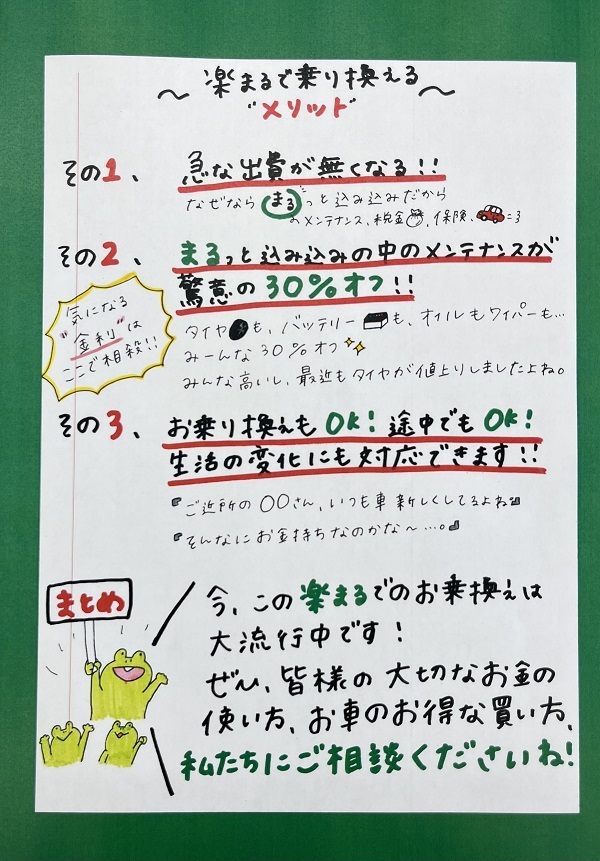 ～楽まるで乗り換える～
"メリット"
その1、 急な出費が無くなる!!
なぜなら まるっと込み込みだから
のメンテナンス、税金、保険、
その2、 まるっと込み込みの中のメンテナンスが
驚意の30%オフ!!
気になる
"金利"は
ここで相殺!!
タイヤも、バッテリーも、オイルもワイパーも…
みーんな30%オフ
みんな高いし、最近もタイヤが値上りしましたよね。
その3、 お乗り換えもOK! 途中でもOK!
生活の変化にも対応できます!!
『ご近所の〇〇さん、いつも車新しくしてるよね』
『そんなにお金持ちなのかな～…。』
まとめ
今、この楽まるでのお乗換えは
大流行中です!
ぜひ、皆様の大切なお金の
使い方、お車のお得な買い方、
私たちにご相談くださいね!